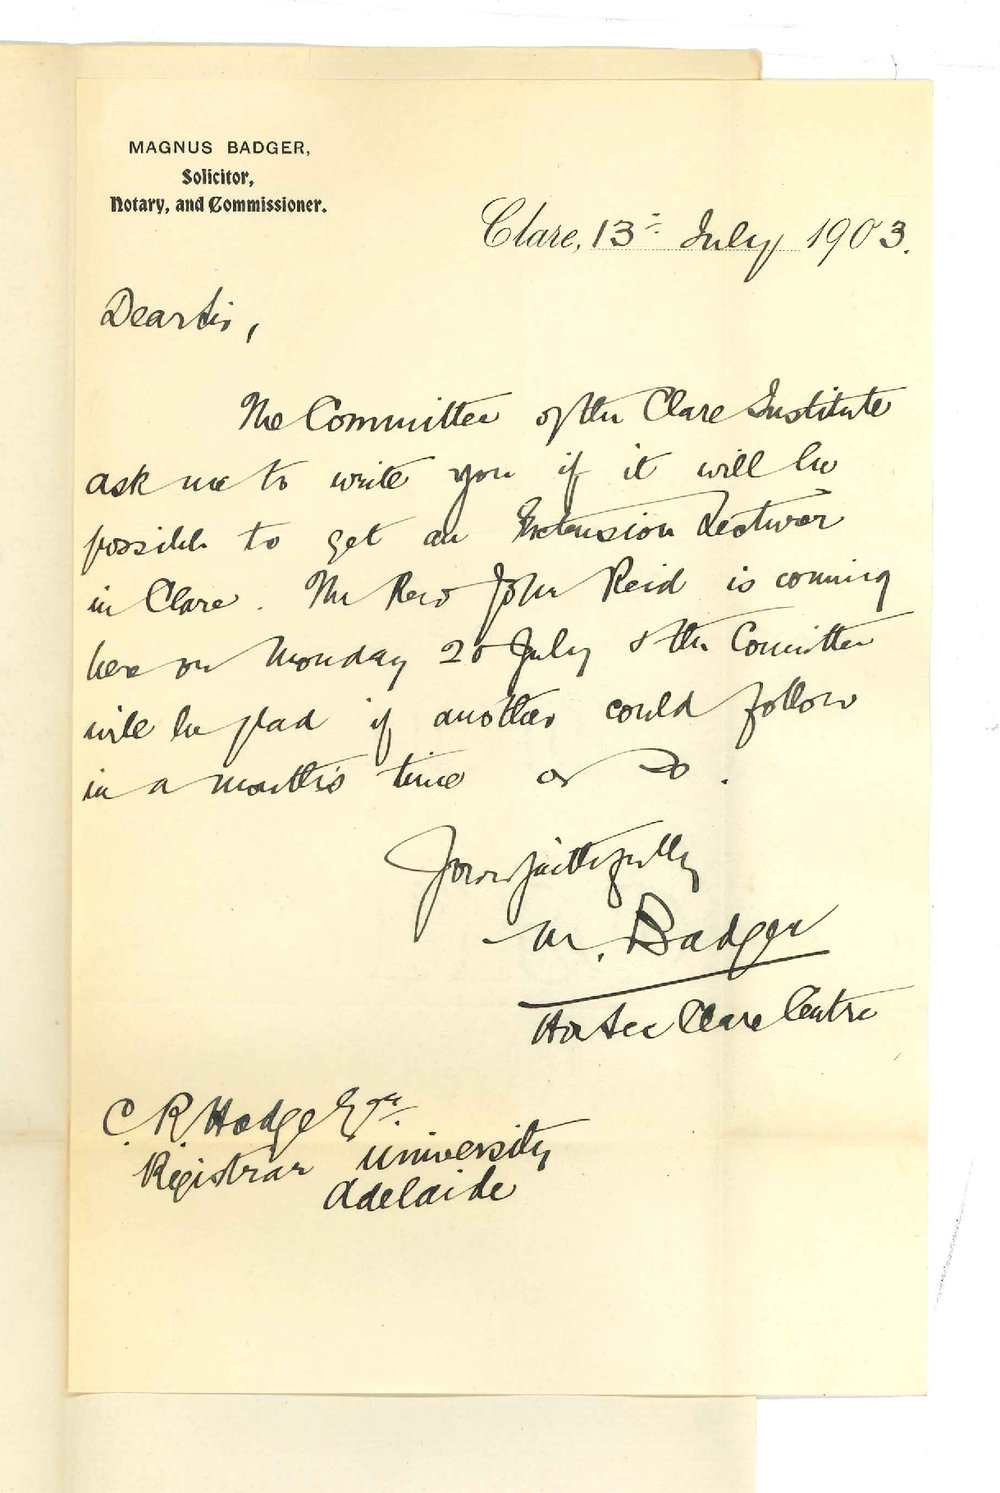 MAGNUS BADGER,
Solicitor,
Notary, and Commissioner.
Clare, 13th July 1903.
Dear Sir,
The Committee of the Clare Institute
ask me to write you if it will be
possible to get an Extension Lecturer
in Clare. The Rev John Reid is coming
here on Monday 20 July & the Committee
will be glad if another could follow
in a month's time or so.
Yours faithfully
M. Badger
Hon Sec Clare Centre
C. R. Hodge Esqre
Registrar University
Adelaide